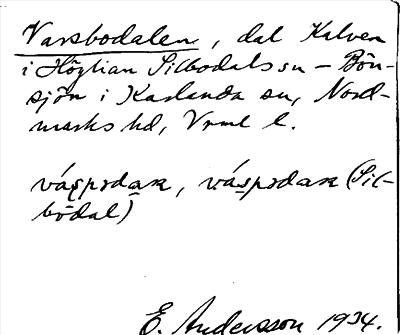 Varsbodalen, dal Kalven
i Högtian Silbodals sn – Bön-
sjön i Karlanda sn, Nord-
marks hd, Vrml l.
(Sil-
bodal)
E. Andersson 1934.